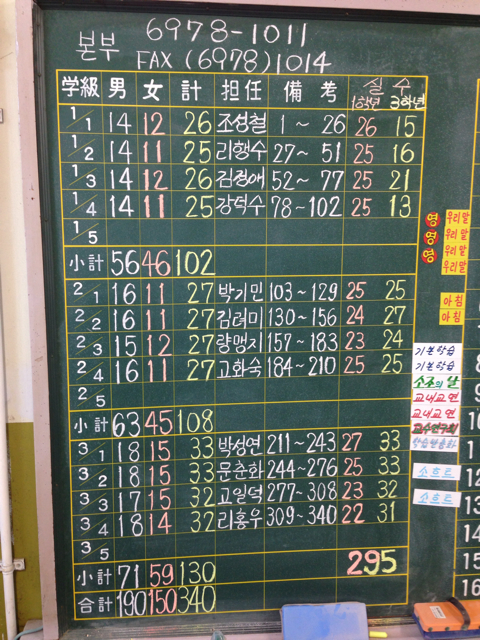 본부 6978-1011
FAX (6978)1014
学級 男 女 計 担任 備考 실수
1학년 3학년
1/1 14 12 26 조성철 1~26 26 15
1/2 14 11 25 리행수 27~51 25 16
1/3 14 12 26 김정애 52~77 25 21
1/4 14 11 25 강덕수 78~102 25 13
1/5
小計 56 46 102
2/1 16 11 27 박기민 103~129 25 25
2/2 16 11 27 김려미 130~156 24 27
2/3 15 12 27 량맹지 157~183 23 24
2/4 16 11 27 고화숙 184~210 25 25
2/5
小計 63 45 108
3/1 18 15 33 박성연 211~243 27 33
3/2 18 15 33 문춘화 244~276 25 33
3/3 17 15 32 고일덕 277~308 23 32
3/4 18 14 32 리홍우 309~340 22 31
3/5
295
小計 71 59 130
合計 190 150 340
영 우리말
영 우리말
영 우리말
우리말
아침
아침
기본학습
기본학습
소조의 날
교내교연
교내교연
소흐트
소흐트
1
12
13
14
15
16